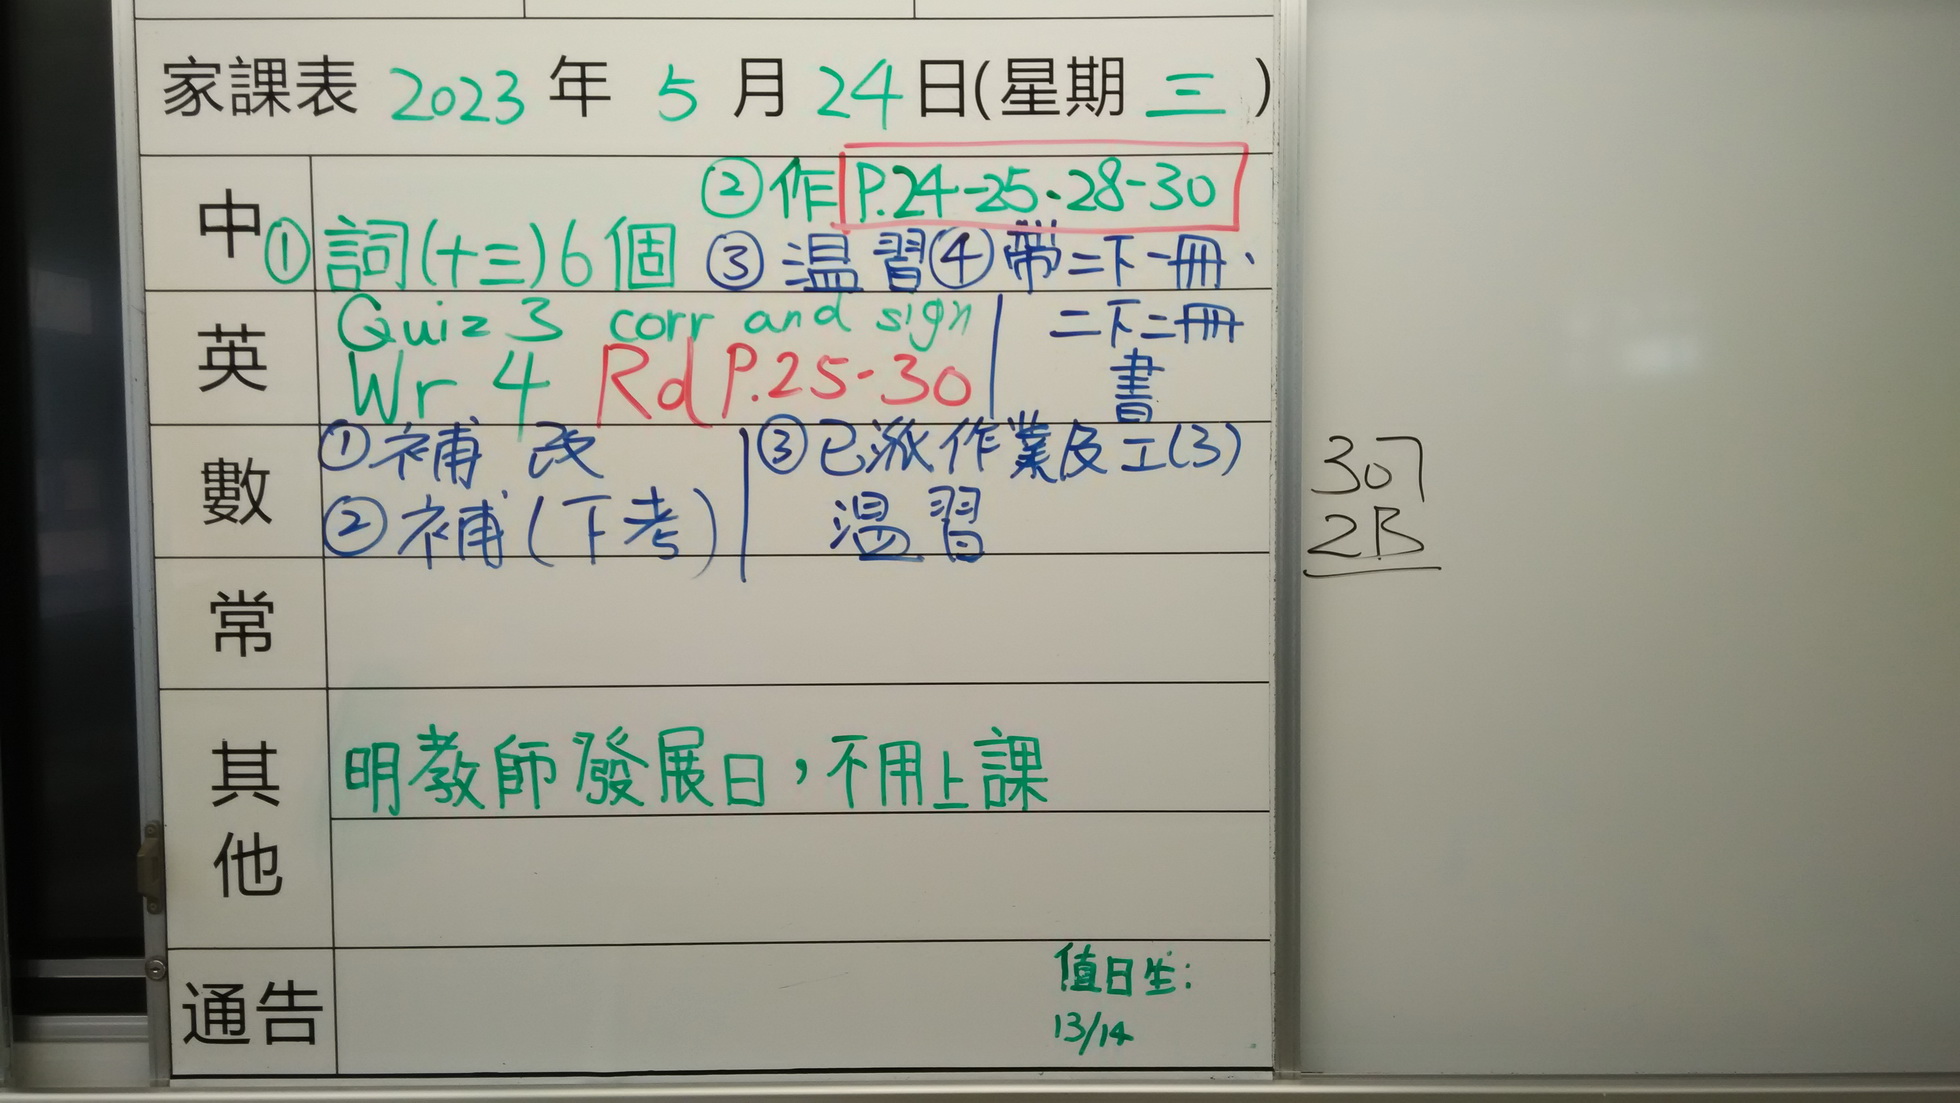 家課表 2023 年 5 月 24 日(星期 三 )
中
②作 P.24-25、28-30
①詞(十三)6個 ③溫習 ④帶二下一冊、
二下二冊
書
英
Quiz 3 corr and sign
Wr 4 Rd P.25-30
數
①補 改
②補(下考)
③已派作業及工(3)
溫習
常
其他
明教師發展日，不用上課
通告
值日生:
13/14
307
2B